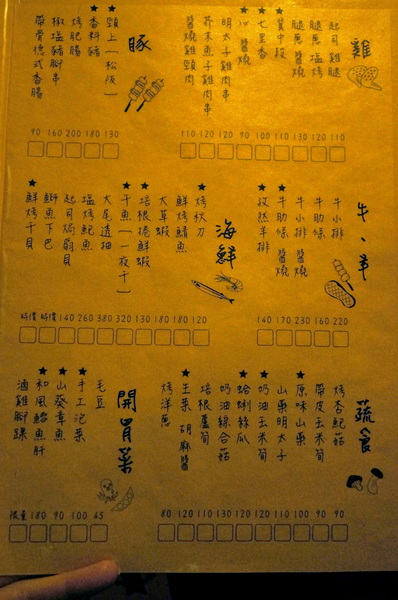 雞
起司雞腿
腿蔥 塩烤
腿蔥 醬燒
★雞中段
★七里香
★心 醬燒
明太子雞肉串
芥末魚子雞肉串
醬燒雞頸肉
110 120 120 90 100 110 120 120 110
豚
★頸上(松阪)
★香料豬
烤肥腸
椒塩豬腳串
帶骨德式香腸
90 160 200 180 130
牛、羊
牛小排
牛肋條
牛小排 醬燒
★牛肋條 醬燒
★孜然羊排
140 170 130 160 220
海鮮
★烤秋刀
鮮烤鯖魚
大草蝦
★培根捲鮮蝦
★干魚(一夜干)
大尾透抽
塩烤魠魚
起司焗扇貝
鮮魚下巴
★鮮烤干貝
時價 時價 140 260 380 320 130 180 180 120
蔬食
烤杏鮑菇
帶皮玉米筍
★原味山藥
山藥明太子
★奶油玉米筍
★蛤蜊絲瓜
奶油綜合菇
培根蘆筍
★生菜 胡麻醬
烤洋蔥
80 120 110 120 120 120 110 100 90 90
開胃菜
毛豆
★手工泡菜
★山葵章魚
★和風鱈魚肝
滷雞腳踝
限量 180 90 100 45